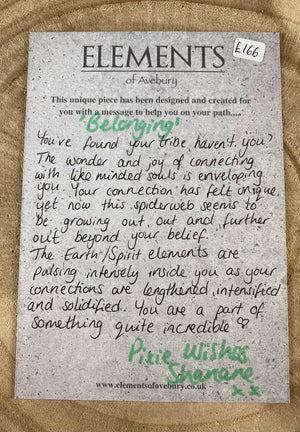 ELEMENTS
£166
of Avebury
This unique piece has been designed and created for
you with a message to help you on your path....
'Belonging'
You've found your tribe, haven't you?
The wonder and joy of connecting
with like minded souls is enveloping
you. Your connection has felt unique,
yet now this spiderweb seems to
be growing out, out and further
out beyond your belief.
The Earth/Spirit elements are
pulsing intensely inside you as your
connections are lengthened, intensified
and solidified. You are a part of
something quite incredible ♡
Pixie Wishes
Shanane
x x
www.elementsofavebury.co.uk